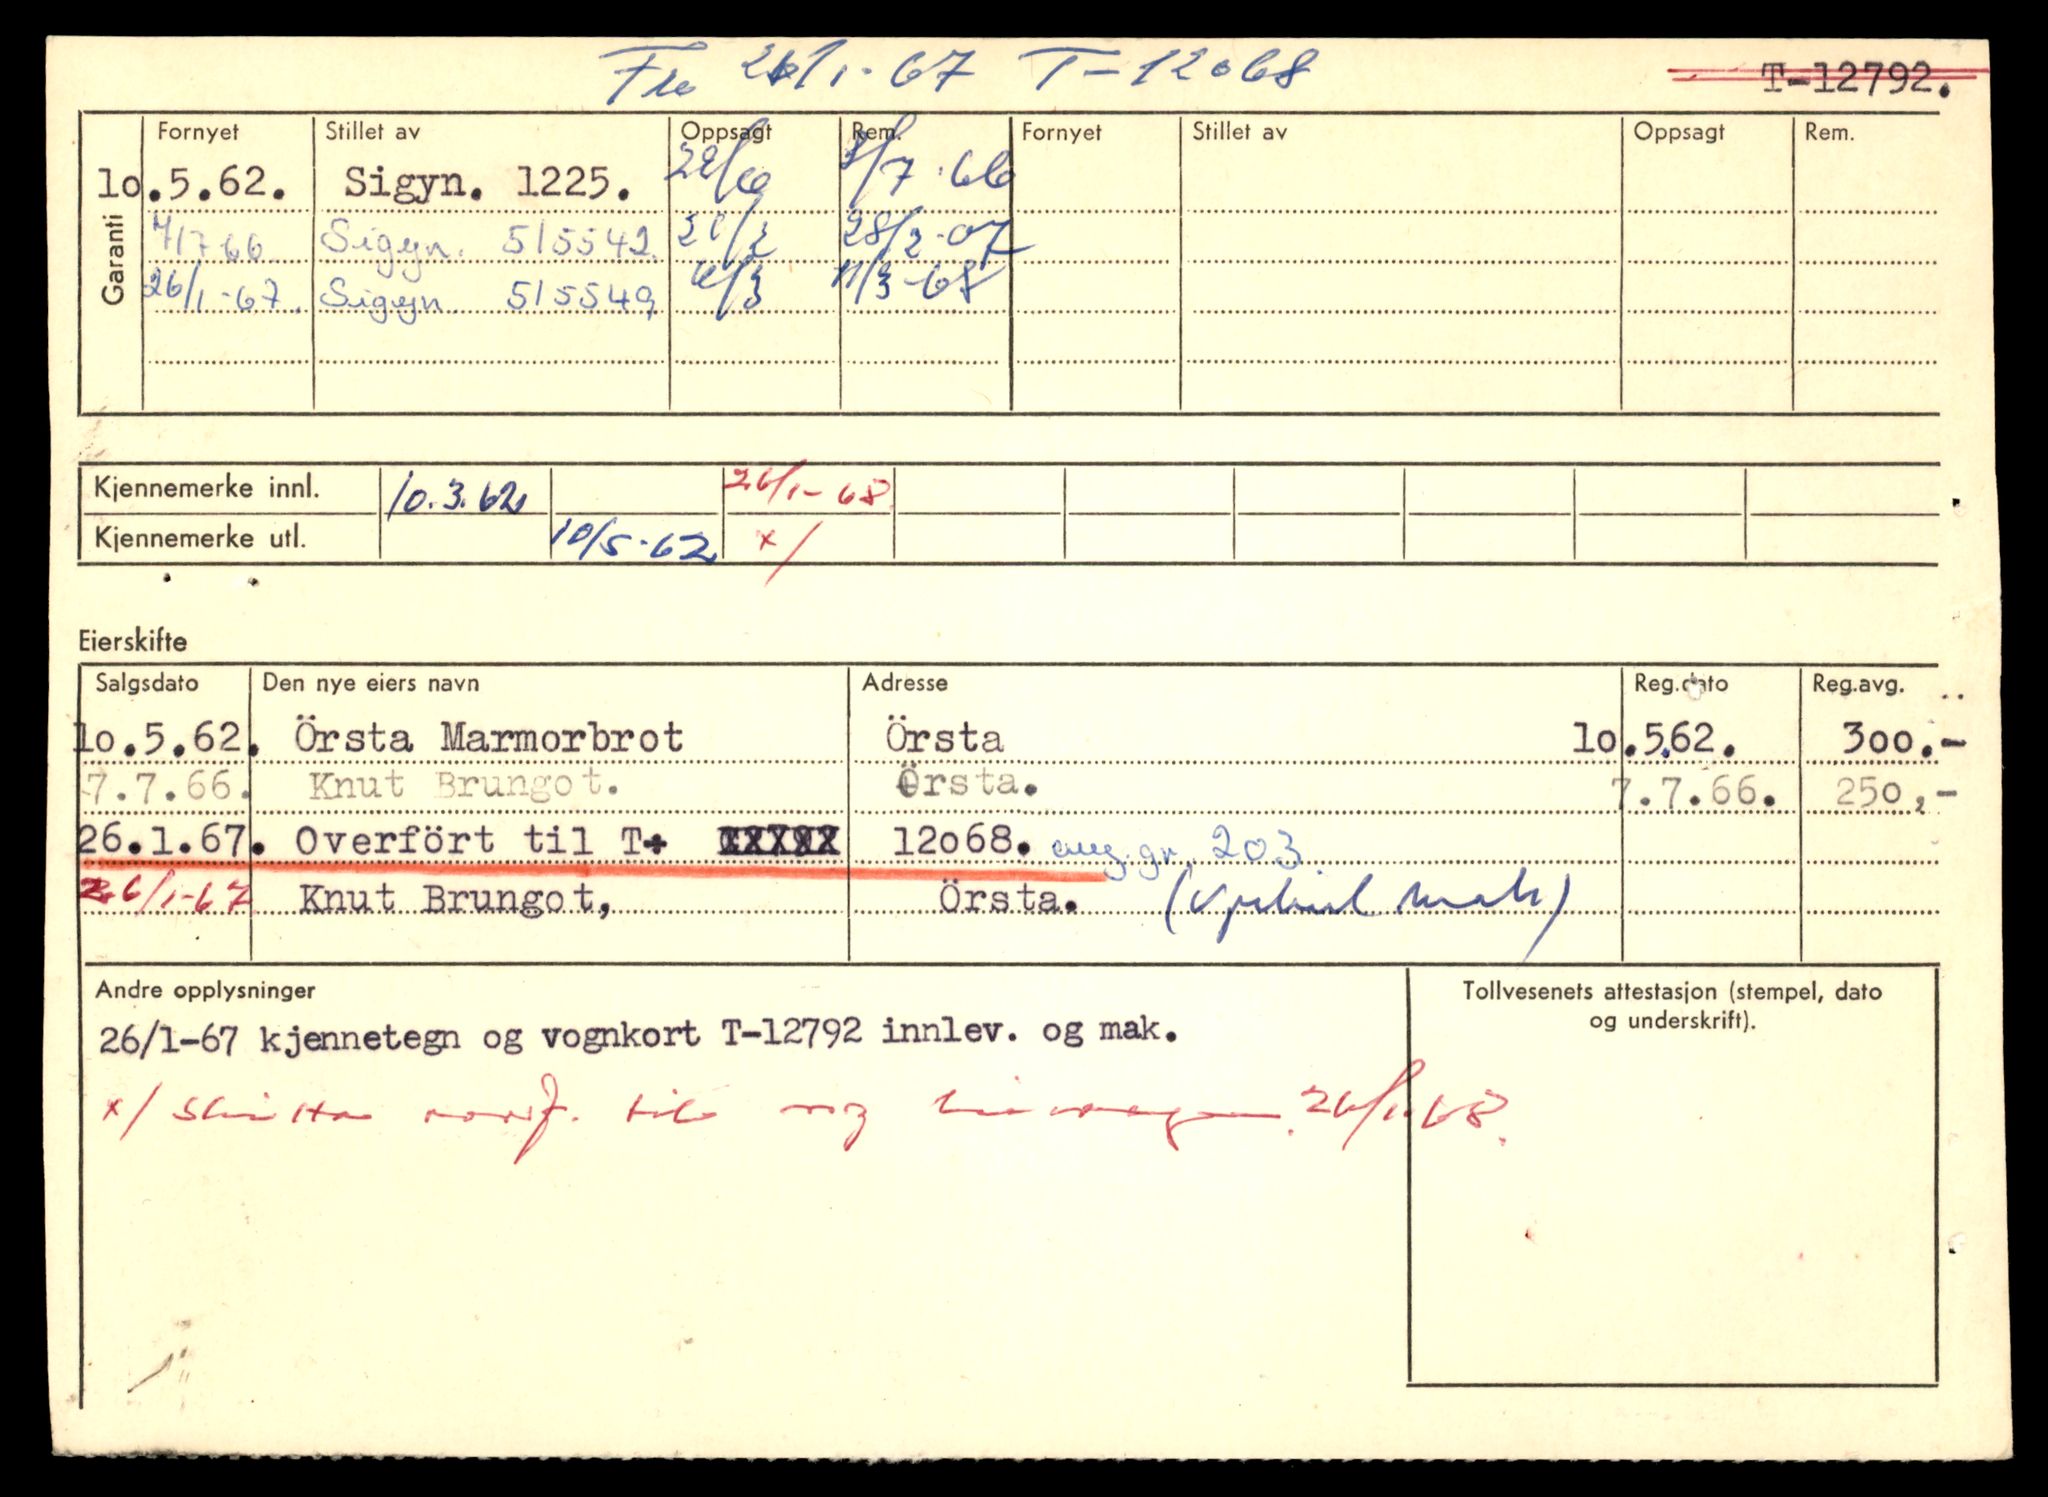 Fra 26/1-67 T-12068
T-12792.
Fornyet Stillet av Oppsagt Rem. Fornyet Stillet av Oppsagt Rem.
Garanti
lo.5.62. Sigyn. 1225. /7-66
7/7 66. Sigyn. 515542. 28/2-67
26/1-67. Sigyn 515549 6/3 11/3-68
Kjennemerke innl. 10.3.62 26/1-68
Kjennemerke utl. 10/5-62 x/
Eierskifte
Salgsdato Den nye eiers navn Adresse Reg.dato Reg.avg.
lo.5.62. Örsta Marmorbrot Örsta lo.5.62. 3oo.-
7.7.66. Knut Brungot. Örsta. 7.7.66. 25o,-
26.1.67. Overfört til T- 12o68. avg.gr. 203
26/1-67 Knut Brungot, Örsta.
Andre opplysninger
Tollvesenets attestasjon (stempel, dato
og underskrift).
26/1-67 kjennetegn og vognkort T-12792 innlev. og mak.
x/ til 26/1-68.